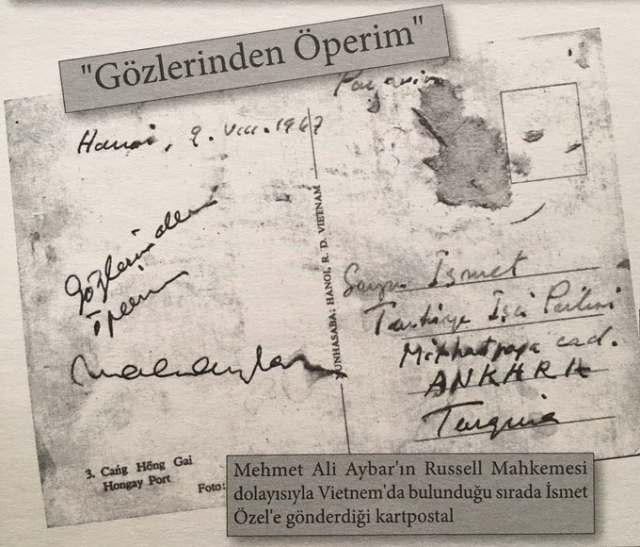 "Gözlerinden Öperim"
Par avion
Hanoi, 9.VIII.1967
Gözlerinden
öperim
XUNHASABA: HANOI, R. D. VIETNAM
Sayın İsmet
Türkiye İşçi Partisi
Mithatpaşa cad.
ANKARA
Turquie
3. Cảng Hồng Gai
Hongay Port
Foto:
Mehmet Ali Aybar'ın Russell Mahkemesi
dolayısıyla Vietnem'da bulunduğu sırada İsmet
Özel'e gönderdiği kartpostal